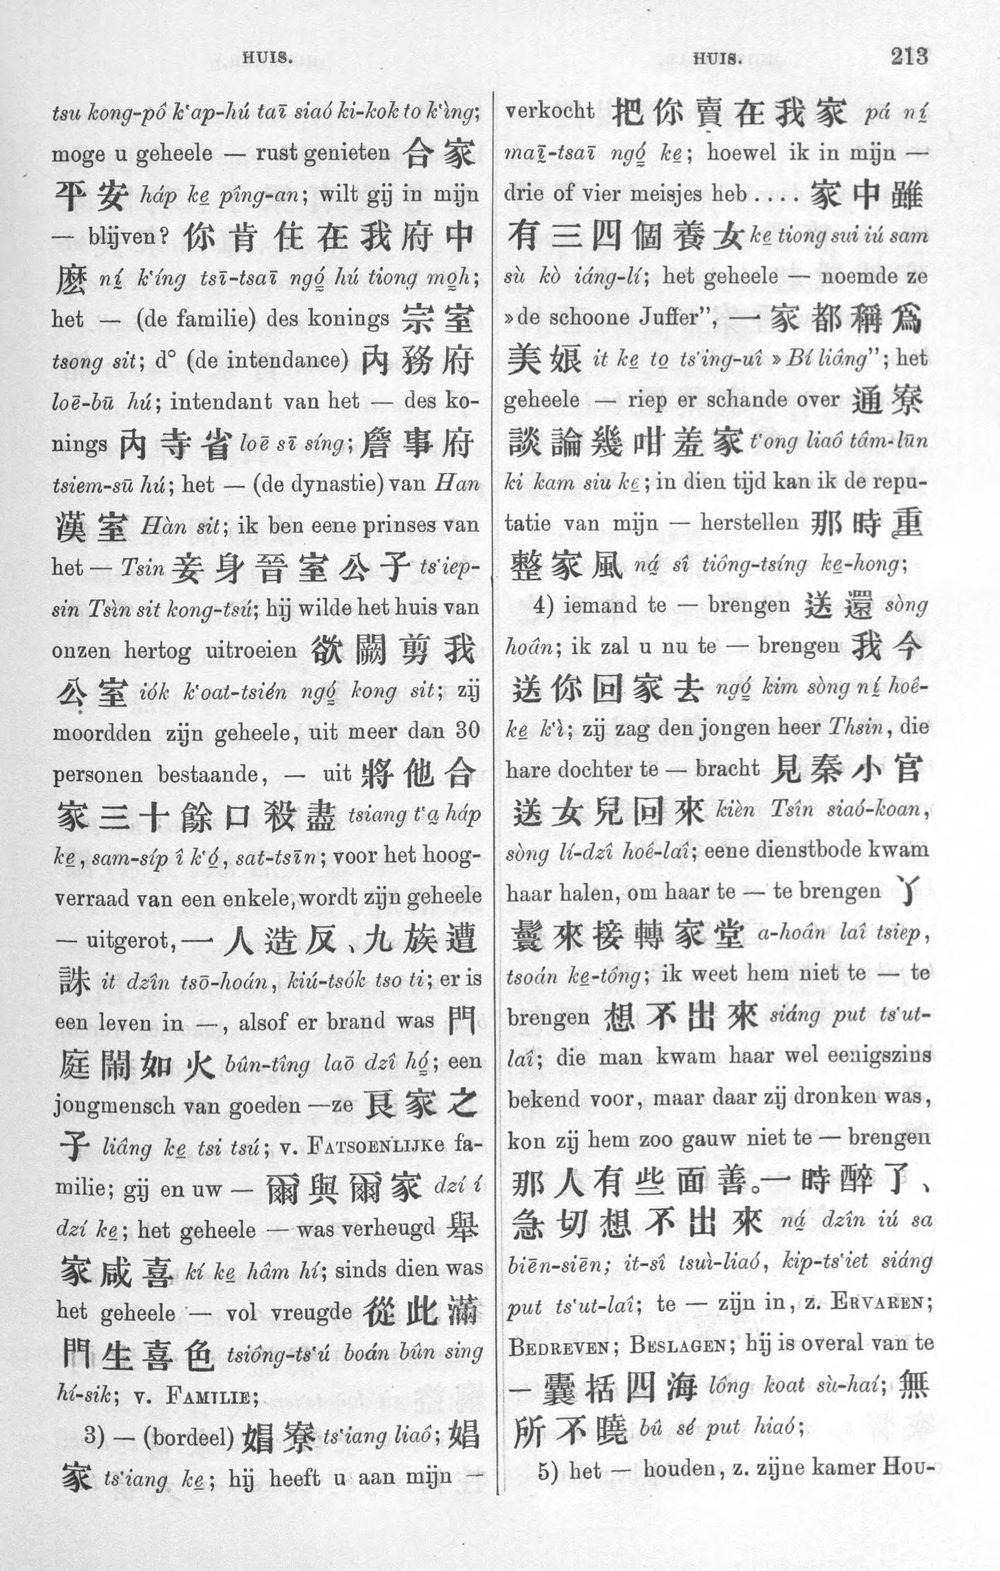 HUIS.
HUIS.
213
tsu kong-pô k‘ap-hú taī siaó ki-kok to k‘ìng;
moge u geheele — rust genieten 合家
平安 háp ke̱ pîng-an; wilt gij in mijn
— blijven? 你肯住在我府中
麽 ní̱ k‘íng tsī-tsaī ngó̱ hú tiong mo̱h;
het — (de familie) des konings 宗室
tsong sit; d° (de intendance) 內務府
loē-bū hú; intendant van het — des ko-
nings 內寺省 loē sī síng; 詹事府
tsiem-sū hú; het — (de dynastie) van Han
漢室 Hàn sit; ik ben eene prinses van
het — Tsin 妾身晉室公子 ts‘iep-
sin Tsìn sit kong-tsú; hij wilde het huis van
onzen hertog uitroeien 欲闕剪我
公室 iók k‘oat-tsién ngó̱ kong sit; zij
moordden zijn geheele, uit meer dan 30
personen bestaande, — uit 將他合
家三十餘口殺盡 tsiang t‘a̱ háp
ke̱, sam-síp î k‘ó̱, sat-tsīn; voor het hoog-
verraad van een enkele, wordt zijn geheele
— uitgerot, 一人造反、九族遭
誅 it dzîn tsō-hoán, kiú-tsók tso ti; er is
een leven in —, alsof er brand was 門
庭鬧如火 bûn-tîng laō dzî hó̱; een
jongmensch van goeden —ze 良家之
子 liâng ke̱ tsi tsú; v. FATSOENLIJKe fa-
milie; gij en uw — 爾與爾家 dzí í
dzí ke̱; het geheele — was verheugd 舉
家咸喜 kí ke̱ hâm hí; sinds dien was
het geheele — vol vreugde 從此滿
門生喜色 tsiông-ts‘ú boán bûn sing
hí-sik; v. FAMILIE;
3) — (bordeel) 娼寮 ts‘iang liaô; 娼
家 ts‘iang ke̱; hij heeft u aan mijn —
verkocht 把你賣在我家 pá ní̱
maī̱-tsaī ngó̱ ke̱; hoewel ik in mijn —
drie of vier meisjes heb .... 家中雖
有三四個養女 ke̱ tiong sui iú sam
sù kò iáng-lí; het geheele — noemde ze
»de schoone Juffer”, 一家都稱爲
美娘 it ke̱ to̱ ts‘ing-uî »Bí liâng”; het
geheele — riep er schande over 通寮
談論幾咁羞家 t‘ong liaô tâm-lūn
ki kam siu ke̱; in dien tijd kan ik de repu-
tatie van mijn — herstellen 那時重
整家風 ná̱ sî tiông-tsíng ke̱-hong;
4) iemand te — brengen 送還 sòng
hoân; ik zal u nu te — brengen 我今
送你回家去 ngó̱ kim sòng ní̱ hoê-
ke̱ k‘ì; zij zag den jongen heer Thsin, die
hare dochter te — bracht 見秦小官
送女兒回來 kièn Tsîn siaó-koan,
sòng lí-dzî hoê-laî; eene dienstbode kwam
haar halen, om haar te — te brengen 丫
鬟來接轉家堂 a-hoân laî tsiep,
tsoán ke̱-tông; ik weet hem niet te — te
brengen 想不出來 siáng put ts‘ut-
laî; die man kwam haar wel eenigszins
bekend voor, maar daar zij dronken was,
kon zij hem zoo gauw niet te — brengen
那人有些面善。一時醉了、
急切想不出來 ná̱ dzîn iú sa
biēn-siēn; it-sî tsuì-liaó, kip-ts‘iet siáng
put ts‘ut-laî; te — zijn in, z. ERVAREN;
BEDREVEN; BESLAGEN; hij is overal van te
— 囊括四海 lông koat sù-haí; 無
所不曉 bû sé put hiaó;
5) het — houden, z. zijne kamer HOU-